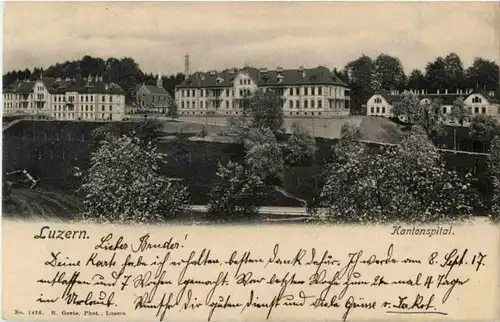 Luzern.
Kantonspital.
Lieber Bruder!
Deine Karte habe ich erhalten, besten Dank dafür. Ich werde am 8. Sept. 17.
entlassen und 7 Wochen gemacht. Vor letzten Woche zum 2ten mal 4 Tage
im Urlaub. Wünsche Dir guten Dienst und viele Grüsse v. Jakob.
No. 1416. E. Goetz, Phot., Luzern